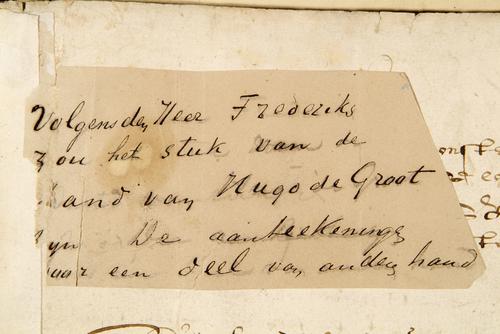 Volgens den Heer Frederiks
zou het stuk van de
hand van Hugo de Groot
zijn De aanteekeningen
voor een deel van anders hand